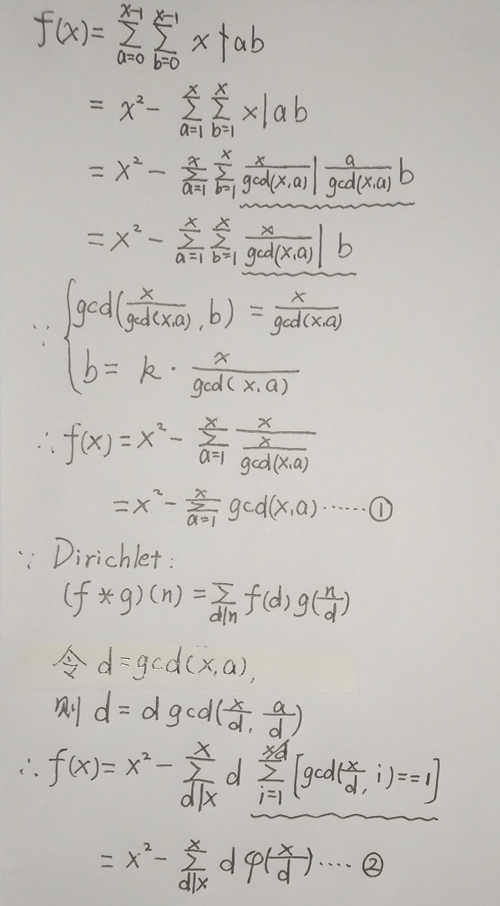 f(x)= ∑_{a=0}^{x-1} ∑_{b=0}^{x-1} x∤ab
= x² - ∑_{a=1}^{x} ∑_{b=1}^{x} x|ab
= x² - ∑_{a=1}^{x} ∑_{b=1}^{x} \frac{x}{gcd(x,a)} | \frac{a}{gcd(x,a)} b
= x² - ∑_{a=1}^{x} ∑_{b=1}^{x} \frac{x}{gcd(x,a)} | b
∵ { gcd(\frac{x}{gcd(x,a)}, b) = \frac{x}{gcd(x,a)}
b = k · \frac{x}{gcd(x,a)}
∴ f(x) = x² - ∑_{a=1}^{x} \frac{x}{\frac{x}{gcd(x,a)}}
= x² - ∑_{a=1}^{x} gcd(x,a) ······ ①
∵ Dirichlet:
(f * g)(n) = ∑_{d|n} f(d) g(\frac{n}{d})
令 d = gcd(x,a),
则 d = d gcd(\frac{x}{d}, \frac{a}{d})
∴ f(x) = x² - ∑_{d|x}^{x} d ∑_{i=1}^{x/d} [gcd(\frac{x}{d}, i) == 1]
= x² - ∑_{d|x}^{x} d φ(\frac{x}{d}) ···· ②